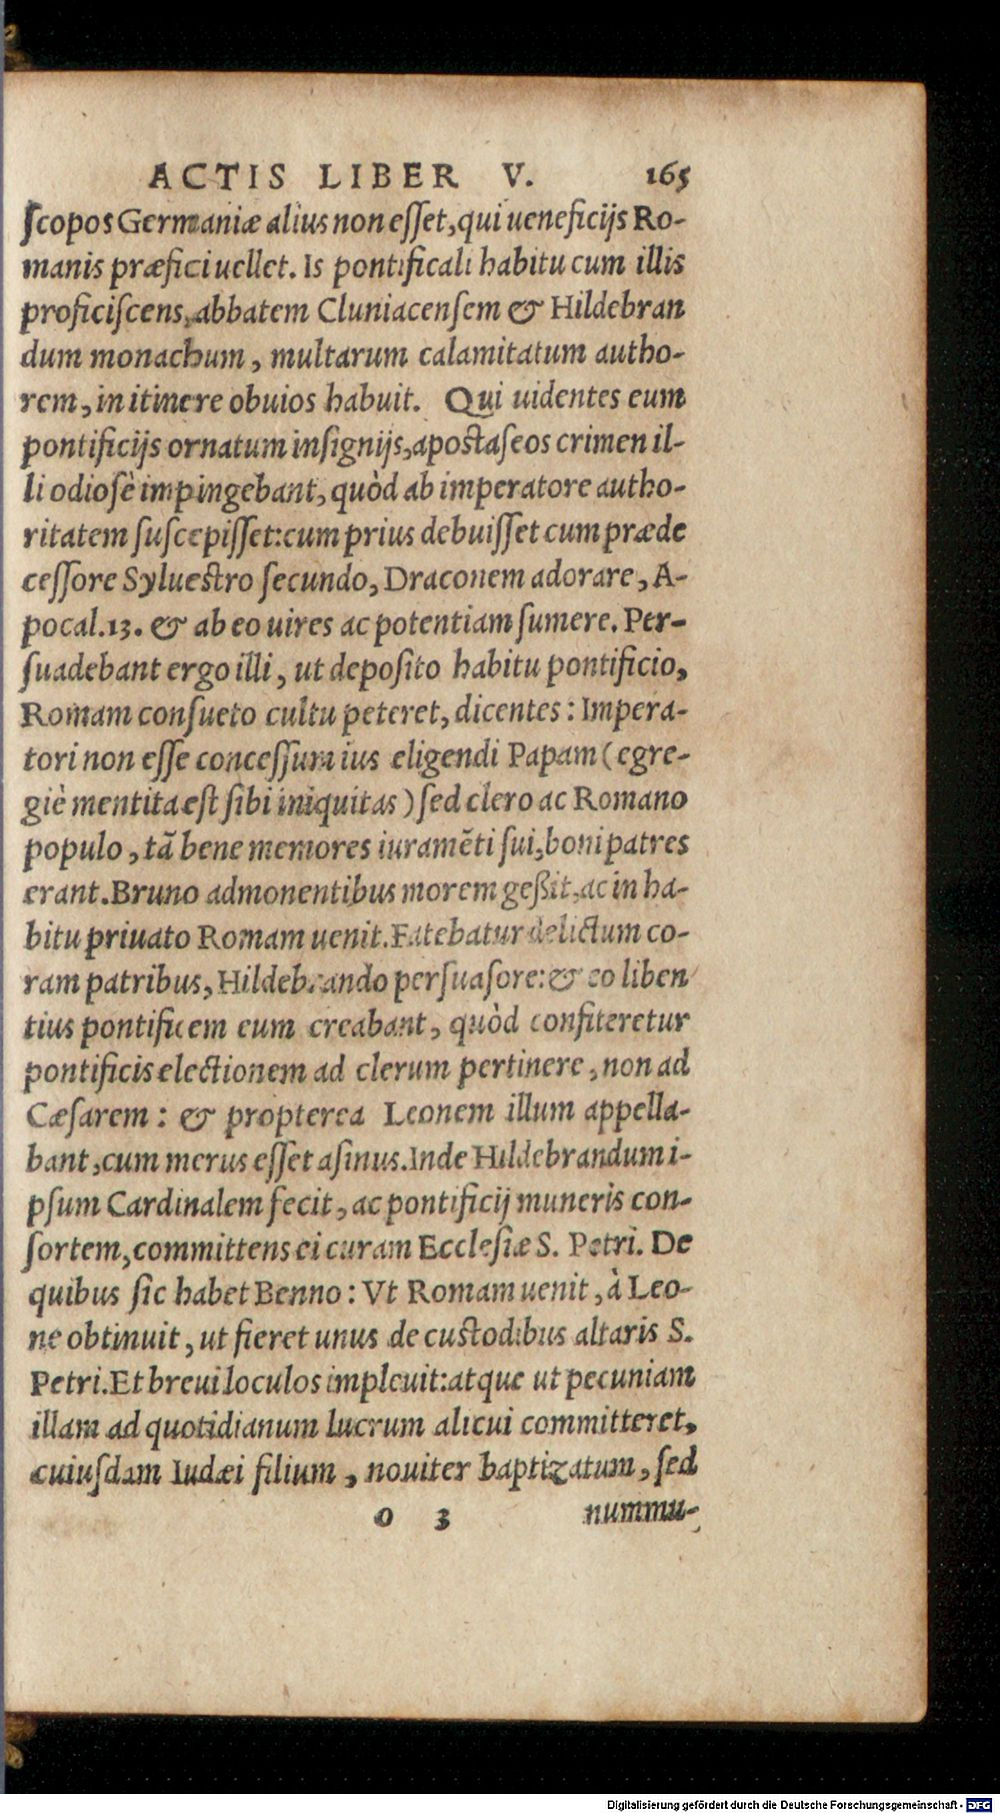 ACTIS LIBER V. 165
ſcopos Germaniæ alius non eſſet, qui ueneficijs Ro-
manis præfici uellet. Is pontificali habitu cum illis
proficiſcens, abbatem Cluniacenſem & Hildebran
dum monachum, multarum calamitatum autho-
rem, in itinere obuios habuit. Qui uidentes eum
pontificijs ornatum inſignijs, apoſtaſeos crimen il-
li odioſè impingebant, quòd ab imperatore autho-
ritatem ſuſcepiſſet: cum prius debuiſſet cum præde
ceſſore Sylueſtro ſecundo, Draconem adorare, A-
pocal. 13. & ab eo uires ac potentiam ſumere. Per-
ſuadebant ergo illi, ut depoſito habitu pontificio,
Romam conſueto cultu peteret, dicentes: Impera-
tori non eſſe conceſſum ius eligendi Papam (egre-
giè mentita eſt ſibi iniquitas) ſed clero ac Romano
populo, tã bene memores iuramẽti ſui, boni patres
erant. Bruno admonentibus morem geßit, ac in ha-
bitu priuato Romam uenit. Fatebatur delictum co-
ram patribus, Hildebrando perſuaſore: & eo liben
tius pontificem eum creabant, quòd confiteretur
pontificis electionem ad clerum pertinere, non ad
Cæſarem: & propterea Leonem illum appella-
bant, cum merus eſſet aſinus. Inde Hildebrandum i-
pſum Cardinalem fecit, ac pontificij muneris con-
ſortem, committens ei curam Eccleſiæ S. Petri. De
quibus ſic habet Benno: Vt Romam uenit, à Leo-
ne obtinuit, ut fieret unus de cuſtodibus altaris S.
Petri. Et breui loculos impleuit: atque ut pecuniam
illam ad quotidianum lucrum alicui committeret,
cuiuſdam Iudæi filium, nouiter baptizatum, ſed
o 3 nummu-
Digitalisierung gefördert durch die Deutsche Forschungsgemeinschaft - DFG